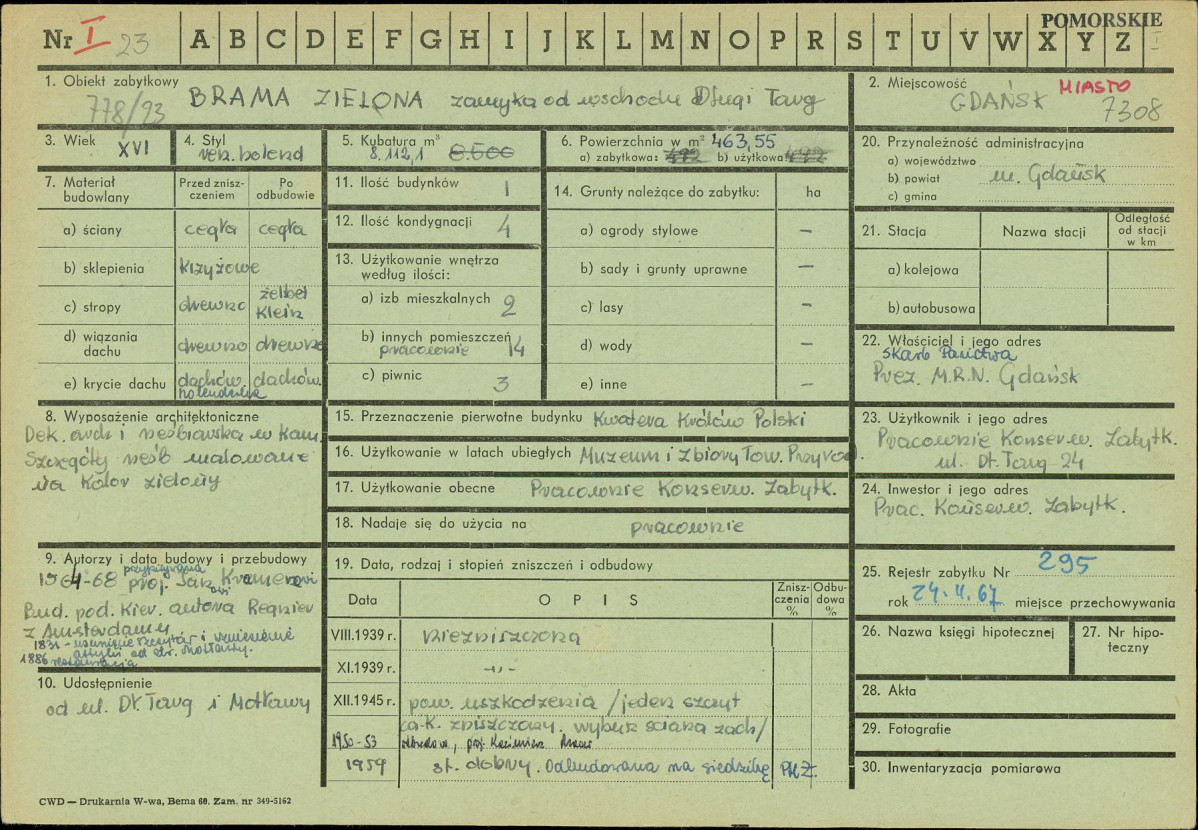 POMORSKIE
Nr I 23 A B C D E F G H I J K L M N O P R S T U V W X Y Z I
1. Obiekt zabytkowy
778/93 BRAMA ZIELONA zamyka od wschodu Długi Targ
2. Miejscowość MIASTO
GDAŃSK 7308
3. Wiek
XVI
4. Styl
ren. holend
5. Kubatura m³
8.112,1 8.500
6. Powierzchnia w m² 463,55
a) zabytkowa: 492 b) użytkowa 492
20. Przynależność administracyjna
a) województwo
b) powiat m. Gdańsk
c) gmina
7. Materiał budowlany
Przed zniszczeniem
Po odbudowie
a) ściany cegła cegła
b) sklepienia krzyżowe
c) stropy drewno żelbet Klein
d) wiązania dachu drewno drewno
e) krycie dachu dachów. holenderska dachów.
11. Ilość budynków 1
12. Ilość kondygnacji 4
13. Użytkowanie wnętrza według ilości:
a) izb mieszkalnych 2
b) innych pomieszczeń 14
pracownie
c) piwnic 3
14. Grunty należące do zabytku: ha
a) ogrody stylowe –
b) sady i grunty uprawne –
c) lasy –
d) wody –
e) inne –
21. Stacja
Nazwa stacji
Odległość od stacji w km
a) kolejowa
b) autobusowa
22. Właściciel i jego adres
Skarb Państwa
Prez. M.R.N. Gdańsk
8. Wyposażenie architektoniczne
Dek. arch i rzeźbiarska w kam.
Szczegóły rzeźb malowane
na kolor zielony
15. Przeznaczenie pierwotne budynku Kwatera Królów Polski
16. Użytkowanie w latach ubiegłych Muzeum i Zbiory Tow. Przyrod.
17. Użytkowanie obecne Pracownie Konserw. Zabytk.
18. Nadaje się do użycia na pracownie
23. Użytkownik i jego adres
Pracownie Konserw. Zabytk.
ul. Dł. Targ 24
24. Inwestor i jego adres
Prac. Konserw. Zabytk.
9. Autorzy i data budowy i przebudowy
1564-68 przypisywana proj. Jan Kramerowi
Bud. pod. kier. autora Regnier
z Amsterdamu
1831 - usunięcie szczytów i wzniesienie
attyki od str. Mołtawy.
1886 restauracja
10. Udostępnienie
od ul. Dł. Targ i Motławy
19. Data, rodzaj i stopień zniszczeń i odbudowy
Data
OPIS
Zniszczenia %
Odbudowa %
VIII.1939 r. niezniszczona
XI.1939 r. -"-
XII.1945 r. pow. uszkodzenia /jeden szczyt
całk. zniszczony. wybusz ściana zach/
1950-53 odbudowa, proj. Kazimierz
1959 st. dobry. Odbudowana na siedzibę PKZ.
25. Rejestr zabytku Nr 295
rok 24.II.67 miejsce przechowywania
26. Nazwa księgi hipotecznej
27. Nr hipoteczny
28. Akta
29. Fotografie
30. Inwentaryzacja pomiarowa
CWD — Drukarnia W-wa, Bema 60. Zam. nr 349-5162